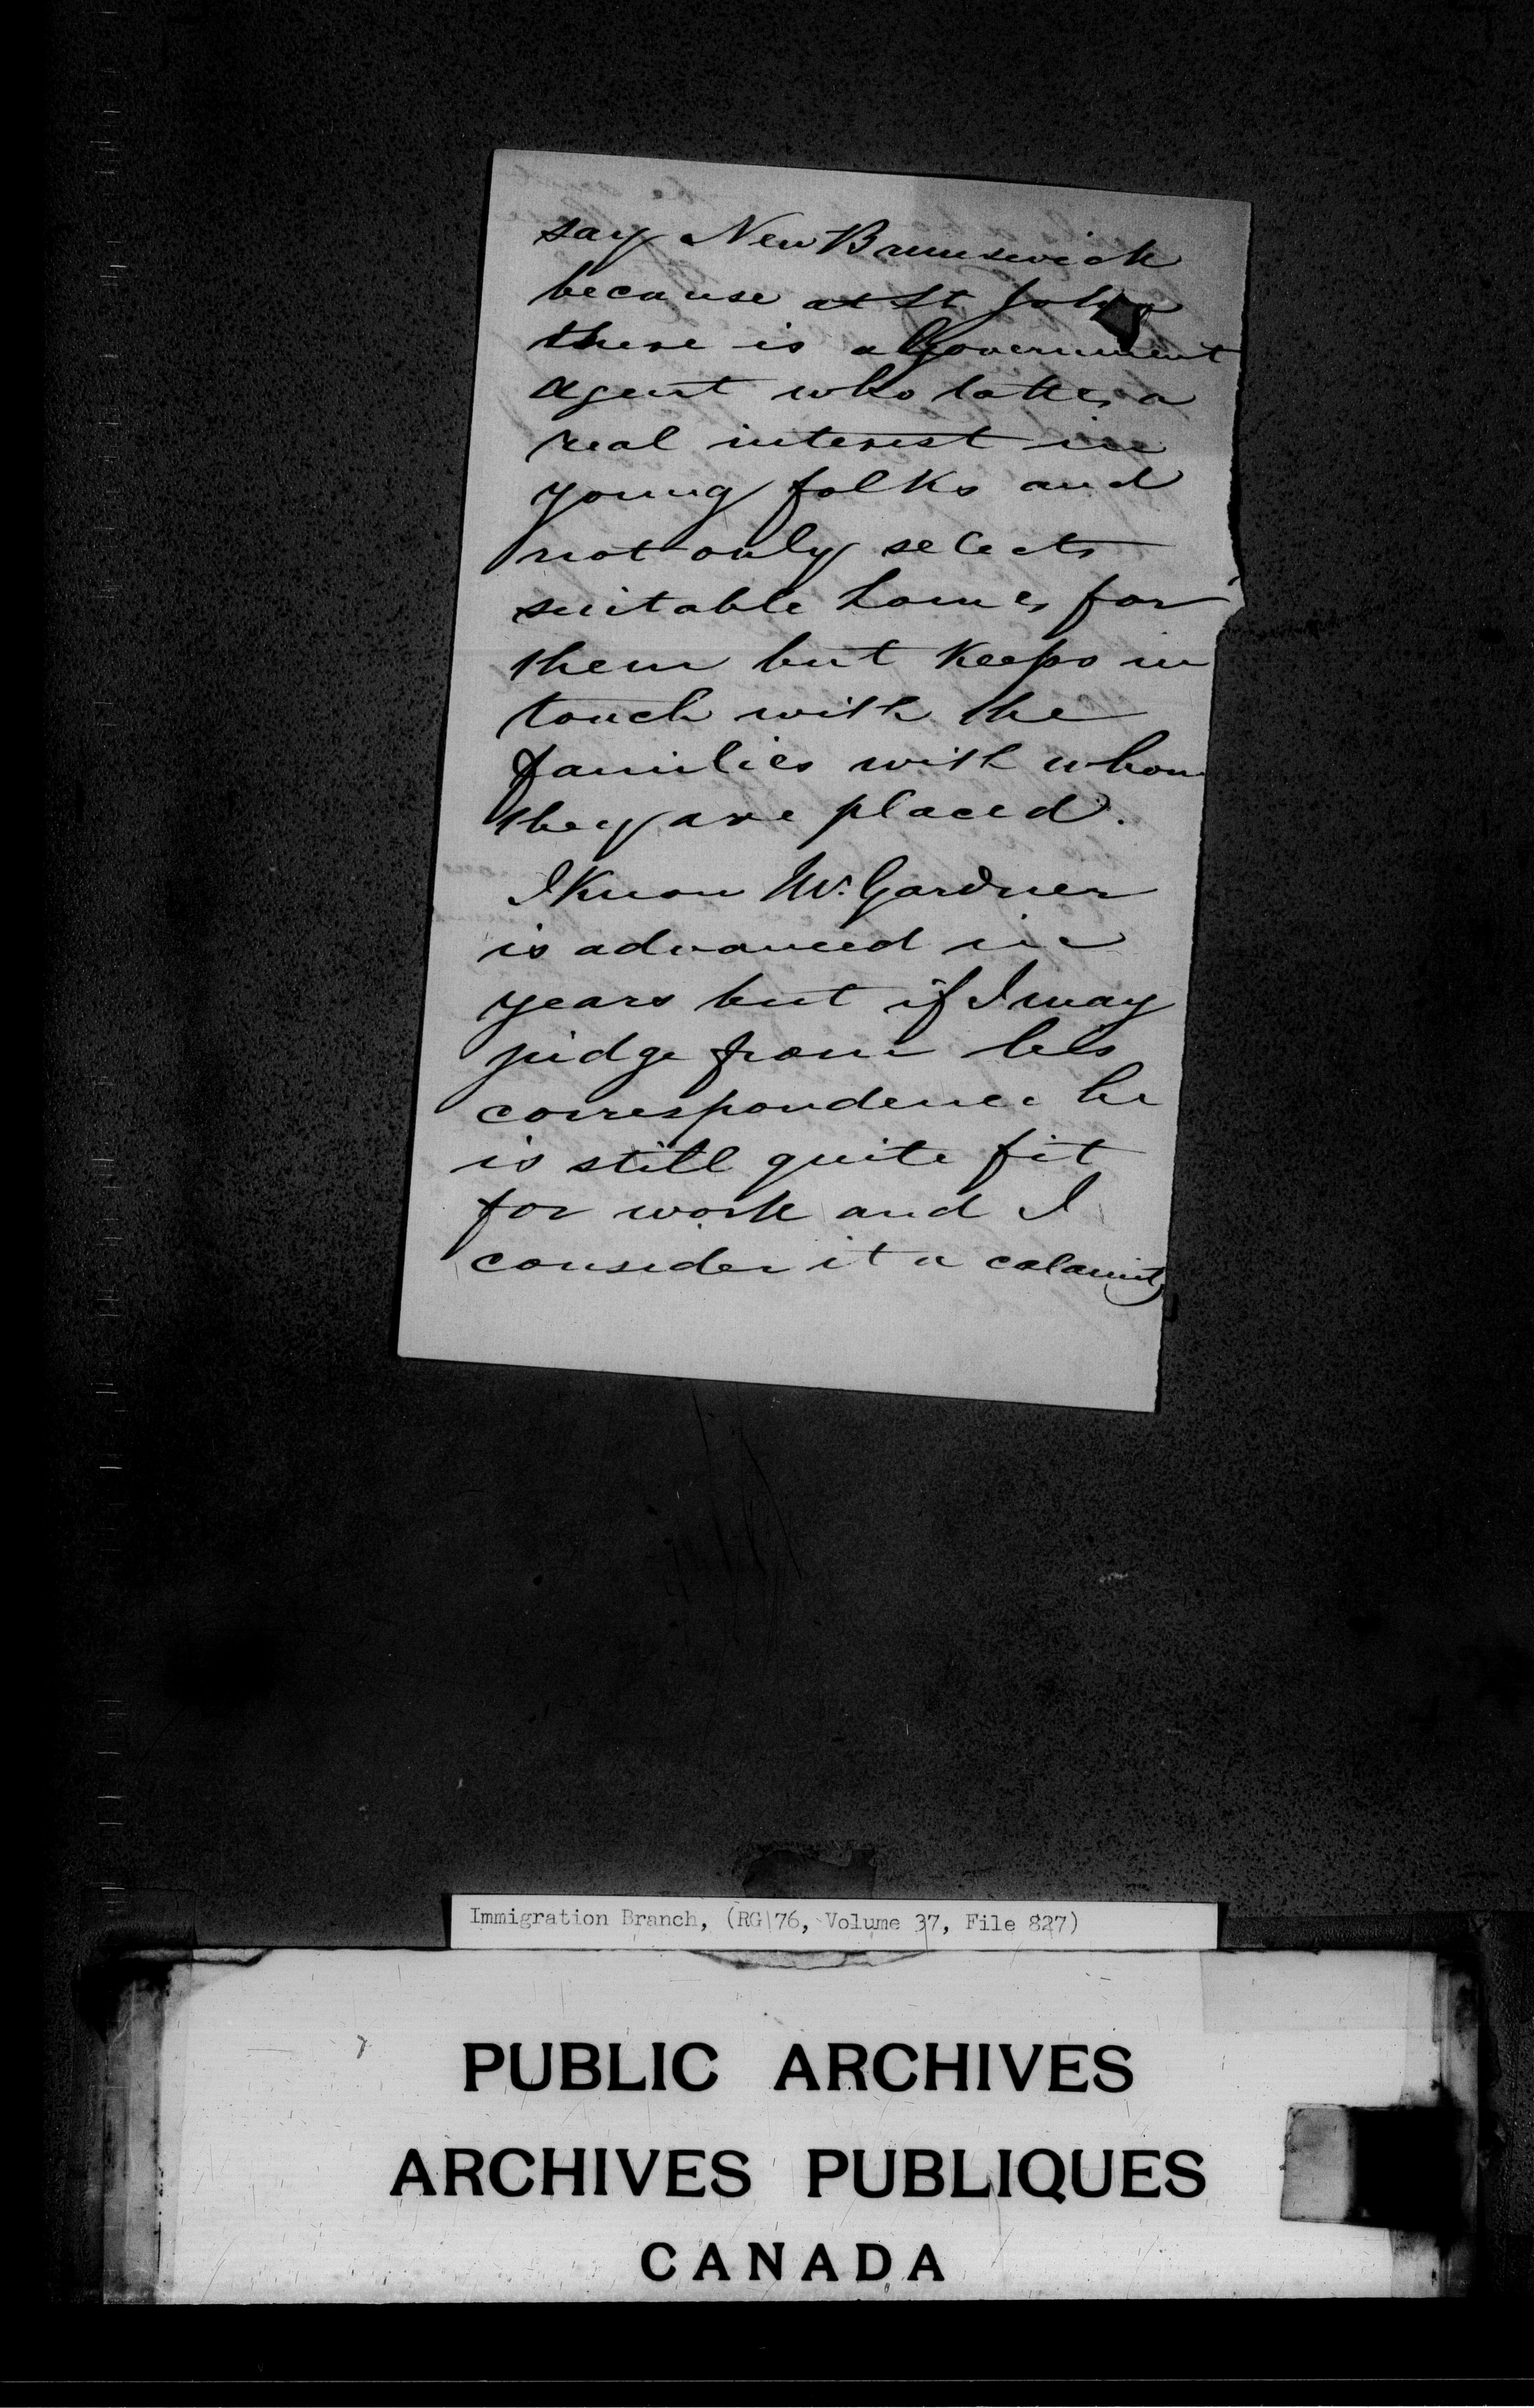 say New Brunswick
because at St John
there is a Government
agent who takes a
real interest in
young folks and
not only selects
suitable homes for
them but keeps in
touch with the
families with whom
they are placed.
I know Mr. Gardner
is advanced in
years but if I may
judge from his
correspondence he
is still quite fit
for work and I
consider it a calamity
Immigration Branch, (RG 76, Volume 37, File 827)
PUBLIC ARCHIVES
ARCHIVES PUBLIQUES
CANADA